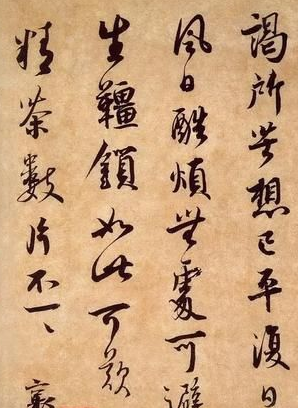 謁所苦想已平復日
風日酷煩無處可避
生韁鎖如此可歎
精茶數片不一〻襄